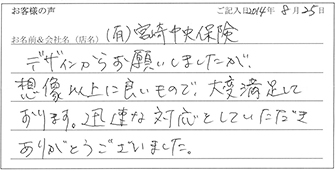 お客様の声
ご記入日2014年8月25日
お名前&会社名(店名)(有)宮崎中央保険
デザインからお願いしましたが、
想像以上に良いもので、大変満足して
おります。迅速な対応としていただき
ありがとうございました。